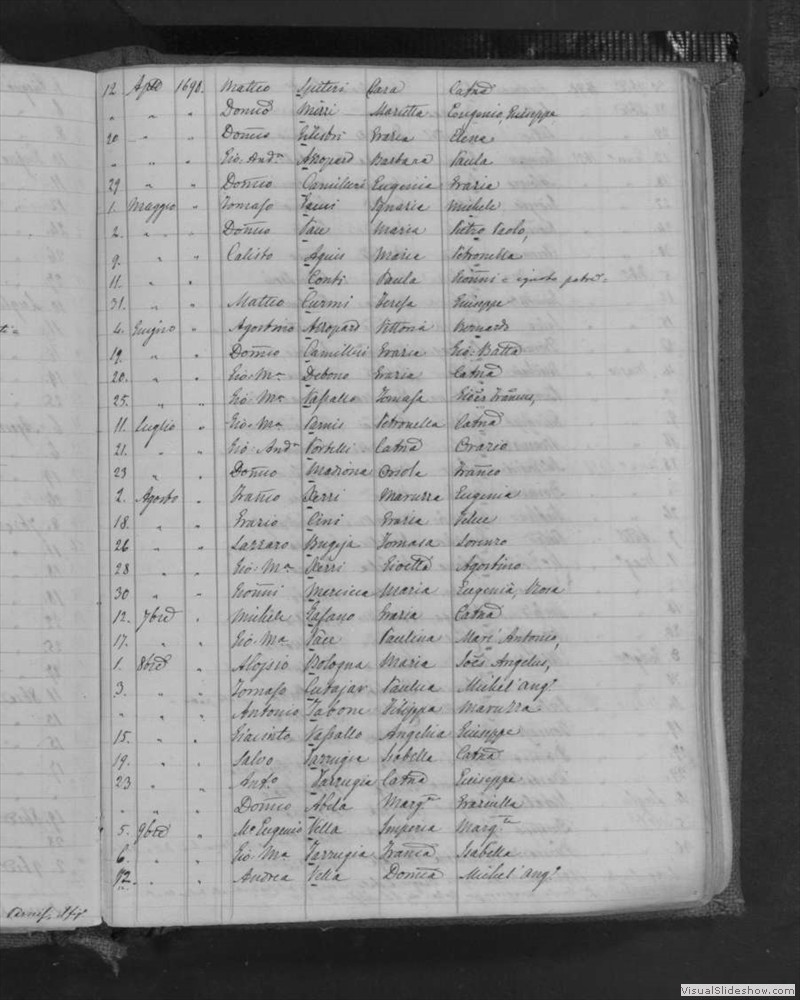 12 Aple 1690. Matteo Spiteri Clara Catnd
" " " Domco Mirri Marietta Eugenio, Giuseppe
20 " " Domco Gilestri Grazia Elena
" " " Gio: Andra Azzopard Barbara Paula
29 " " Domco Camilleri Eugenia Grazia
1. Maggio " Tomaso Ignazia Michele
2. " " Domco Pace Maria Pietro Paolo,
9. " " Calisto Agius Maria Petronella
11. " " Conti Paula
31. " " Matteo Curmi Teresa Giuseppe
4. Giugno " Agostino Azzopard Vittoria Bernardo
19. " " Domco Camilleri Grazia Gio: Batta
20. " " Gio: Ma Debono Grazia Catnd
25. " " Gio: Ma Vassallo Tomasa
11. Luglio " Gio: Ma Parnis Petronella Catnd
21. " " Gio: Andra Portelli Catnd Orazio
23 " " Domco Madiona Orsola Franco
2. Agosto " Franco Xerri Maruzza Eugenia
18. " " Grazio Cini Grazia Felice
26 " " Lazzaro Bugeja Tomasa Lorenzo
28 " " Gio: Ma Xerri Gioetta Agostino
30 " " Gionni Mercieca Maria Eugenia, Rosa
12. 7bre " Michele Gafano Grazia Catnd
17. " " Gio: Ma Pace Paulina Mari' Antonio,
1. 8bre " Aloysio Bologna Maria Joes Angelus,
3. " " Tomaso Cutajar Paulica Michel' Ango
" " " Antonio Tabone Filippa Maruzza
15. " " Giacinto Vassallo Angelica Giuseppe
19. " " Salvo Farrugia Isabella Catnd
23 " " Ando Farrugia Catnd Giuseppe
" " " Domco Abela Margta Graziulla
5. 9bre " Mo Eugenio Vella Imperia Margta
6. " " Gio: Ma Farrugia Franca Isabella
12. " " Andrea Vella Domca Michel' Ango
VisualSlideshow.com